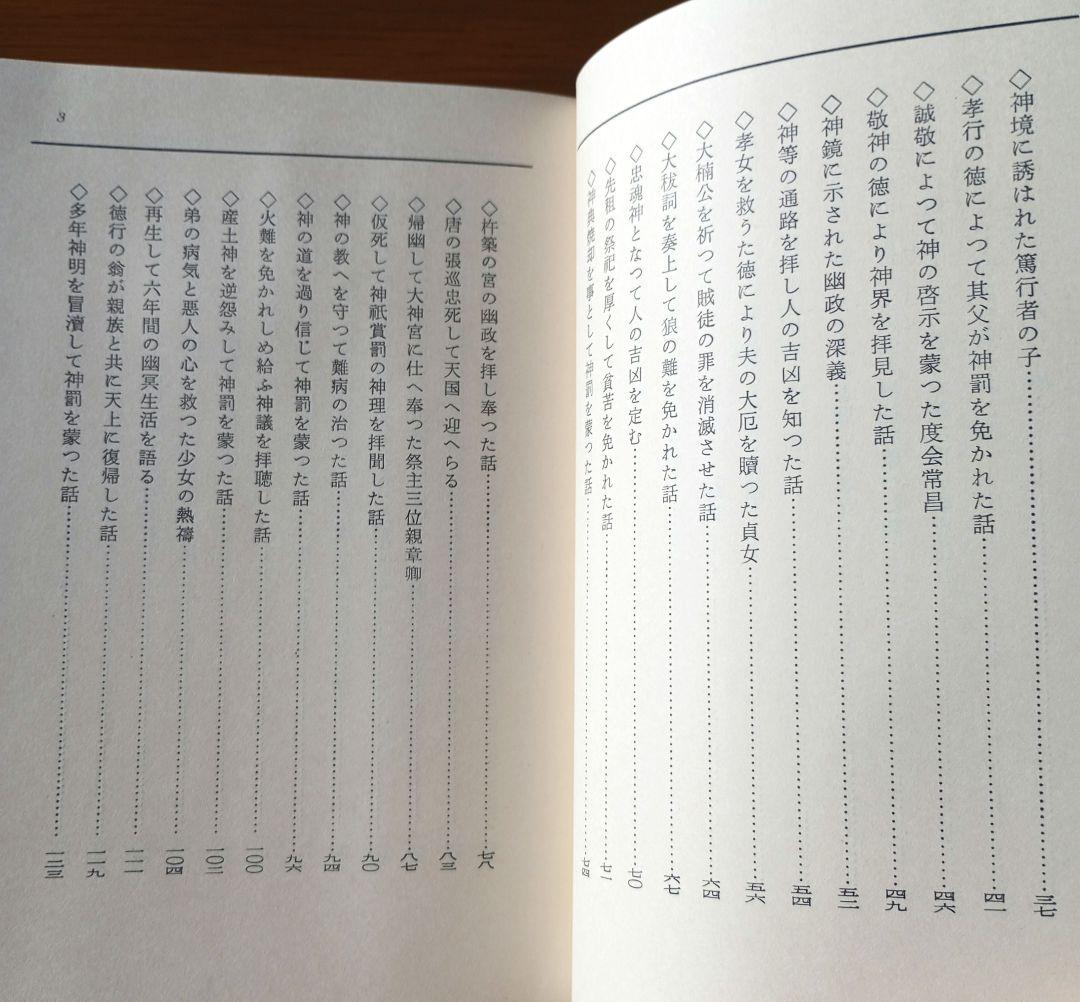 ◇神境に誘はれた篤行者の子…………三七
◇孝行の徳によつて其父が神罰を免かれた話…………四一
◇誠敬によつて神の啓示を蒙つた度会常昌…………四六
◇敬神の徳により神界を拝見した話…………四九
◇神鏡に示された幽政の深義…………五二
◇神等の通路を拝し人の吉凶を知つた話…………五四
◇孝女を救うた徳により夫の大厄を贖つた貞女…………五六
◇大楠公を祈つて賊徒の罪を消滅させた話…………六四
◇大秡詞を奏上して狼の難を免かれた話…………六七
◇忠魂神となつて人の吉凶を定む…………七〇
◇先祖の祭祀を厚くして貧苦を免かれた話…………七一
◇神典焼却を事として神罰を蒙つた話…………七四
3
◇杵築の宮の幽政を拝し奉つた話…………七八
◇唐の張巡忠死して天国へ迎へらる…………八三
◇帰幽して大神宮に仕へ奉つた祭主三位親章卿…………八七
◇仮死して神祇賞罰の神理を拝聞した話…………九〇
◇神の教へを守つて難病の治つた話…………九四
◇神の道を過り信じて神罰を蒙つた話…………九六
◇火難を免かれしめ給ふ神議を拝聴した話…………一〇〇
◇産土神を逆怨みして神罰を蒙つた話…………一〇二
◇弟の病気と悪人の心を救つた少女の熱禱…………一〇四
◇再生して六年間の幽冥生活を語る…………一一一
◇徳行の翁が親族と共に天上に復帰した話…………一一九
◇多年神明を冒瀆して神罰を蒙つた話…………一二三